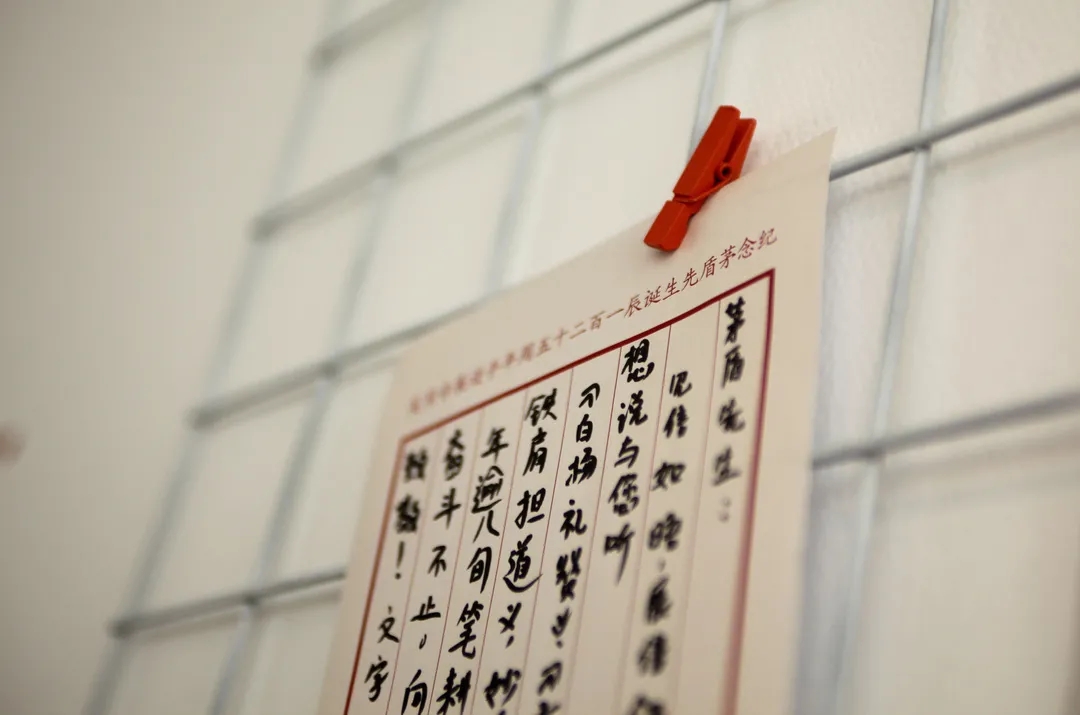 纪念茅盾先生诞辰一百二十五周年
茅盾先生:
见信如晤,展信
想说与您听
《白杨礼赞》、《
铁肩担道义,妙
年逾八旬笔耕
奋斗不止。向
敬!文字